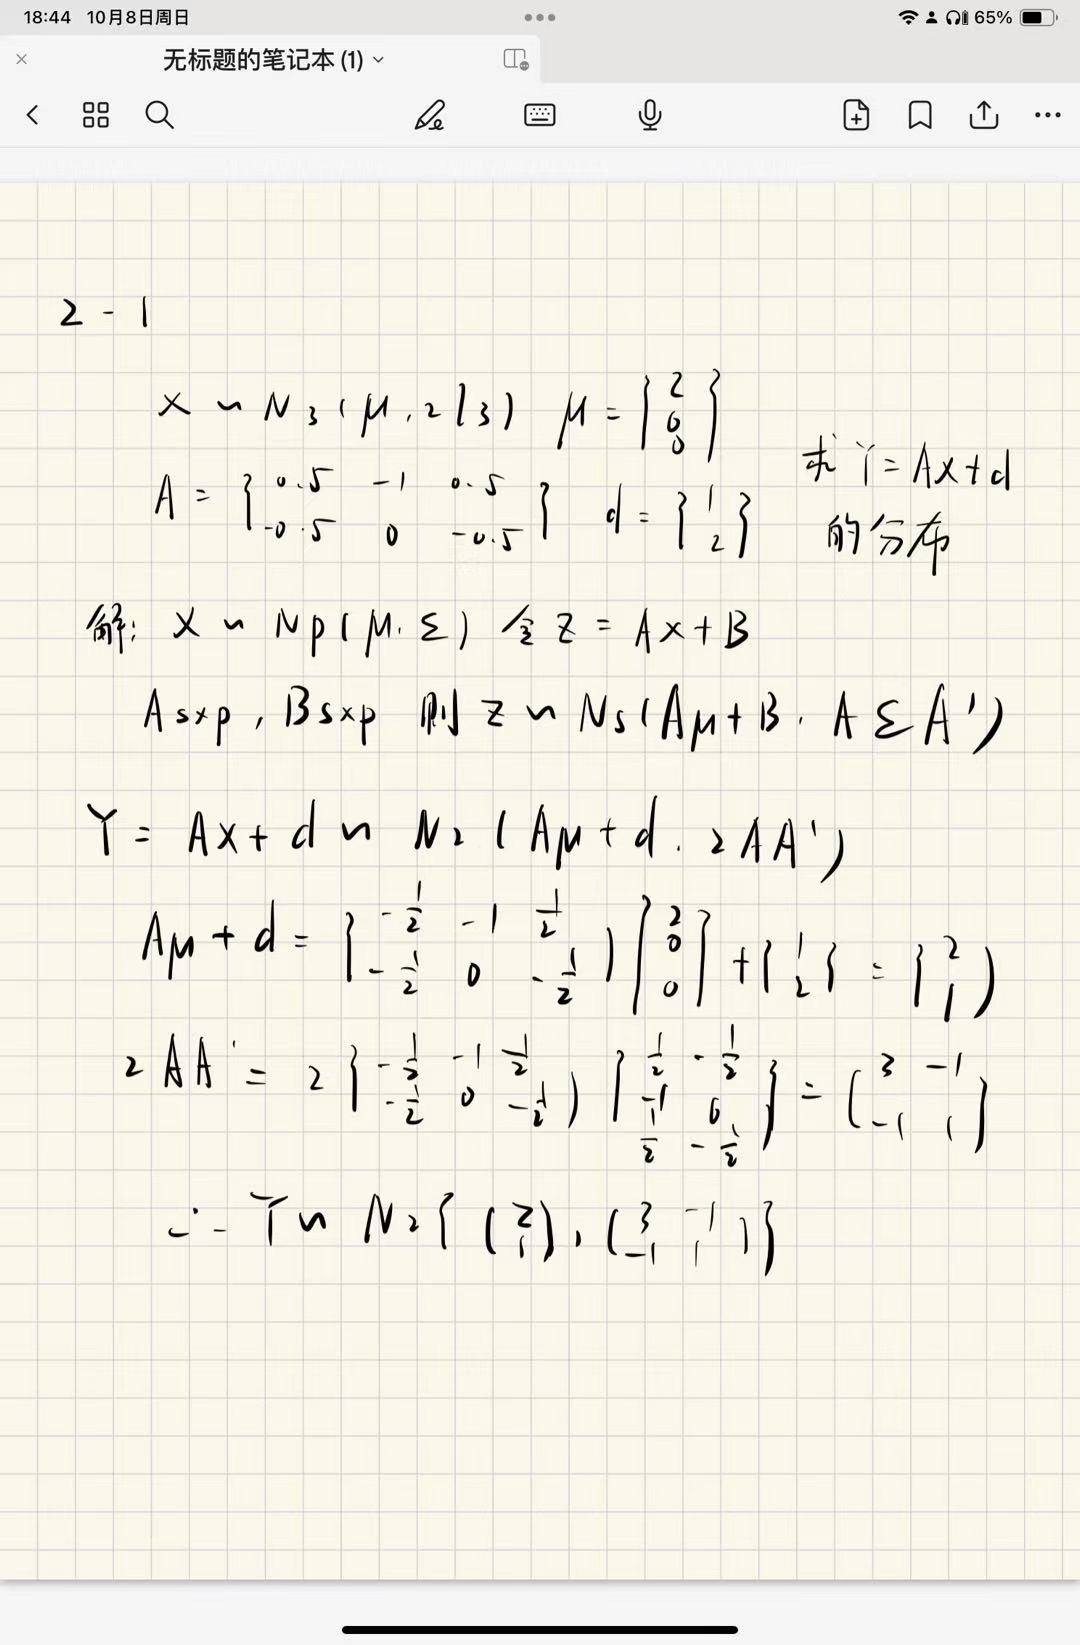 18:44 10月8日周日
65%
无标题的笔记本 (1)
2-1
X ~ N₃(μ, 2I₃) μ = [2 0 0]
A = [0.5 -1 0.5; -0.5 0 -0.5] d = [1 2] 求 Y = AX+d
的分布
解: X ~ Np(μ, Σ) 令 Z = AX+B
A s×p, B s×p 则 Z ~ Ns(Aμ+B, AΣA')
Y = AX+d ~ N₂(Aμ+d, 2AA')
Aμ+d = [-1/2 -1 1/2; -1/2 0 -1/2] [2 0 0] + [1 2] = [2 1]
2AA' = 2 [-1/2 -1 1/2; -1/2 0 -1/2] [1/2 -1/2; -1 0; 1/2 -1/2] = [3 -1; -1 1]
∴ Y ~ N₂{(2 1), (3 -1; -1 1)}